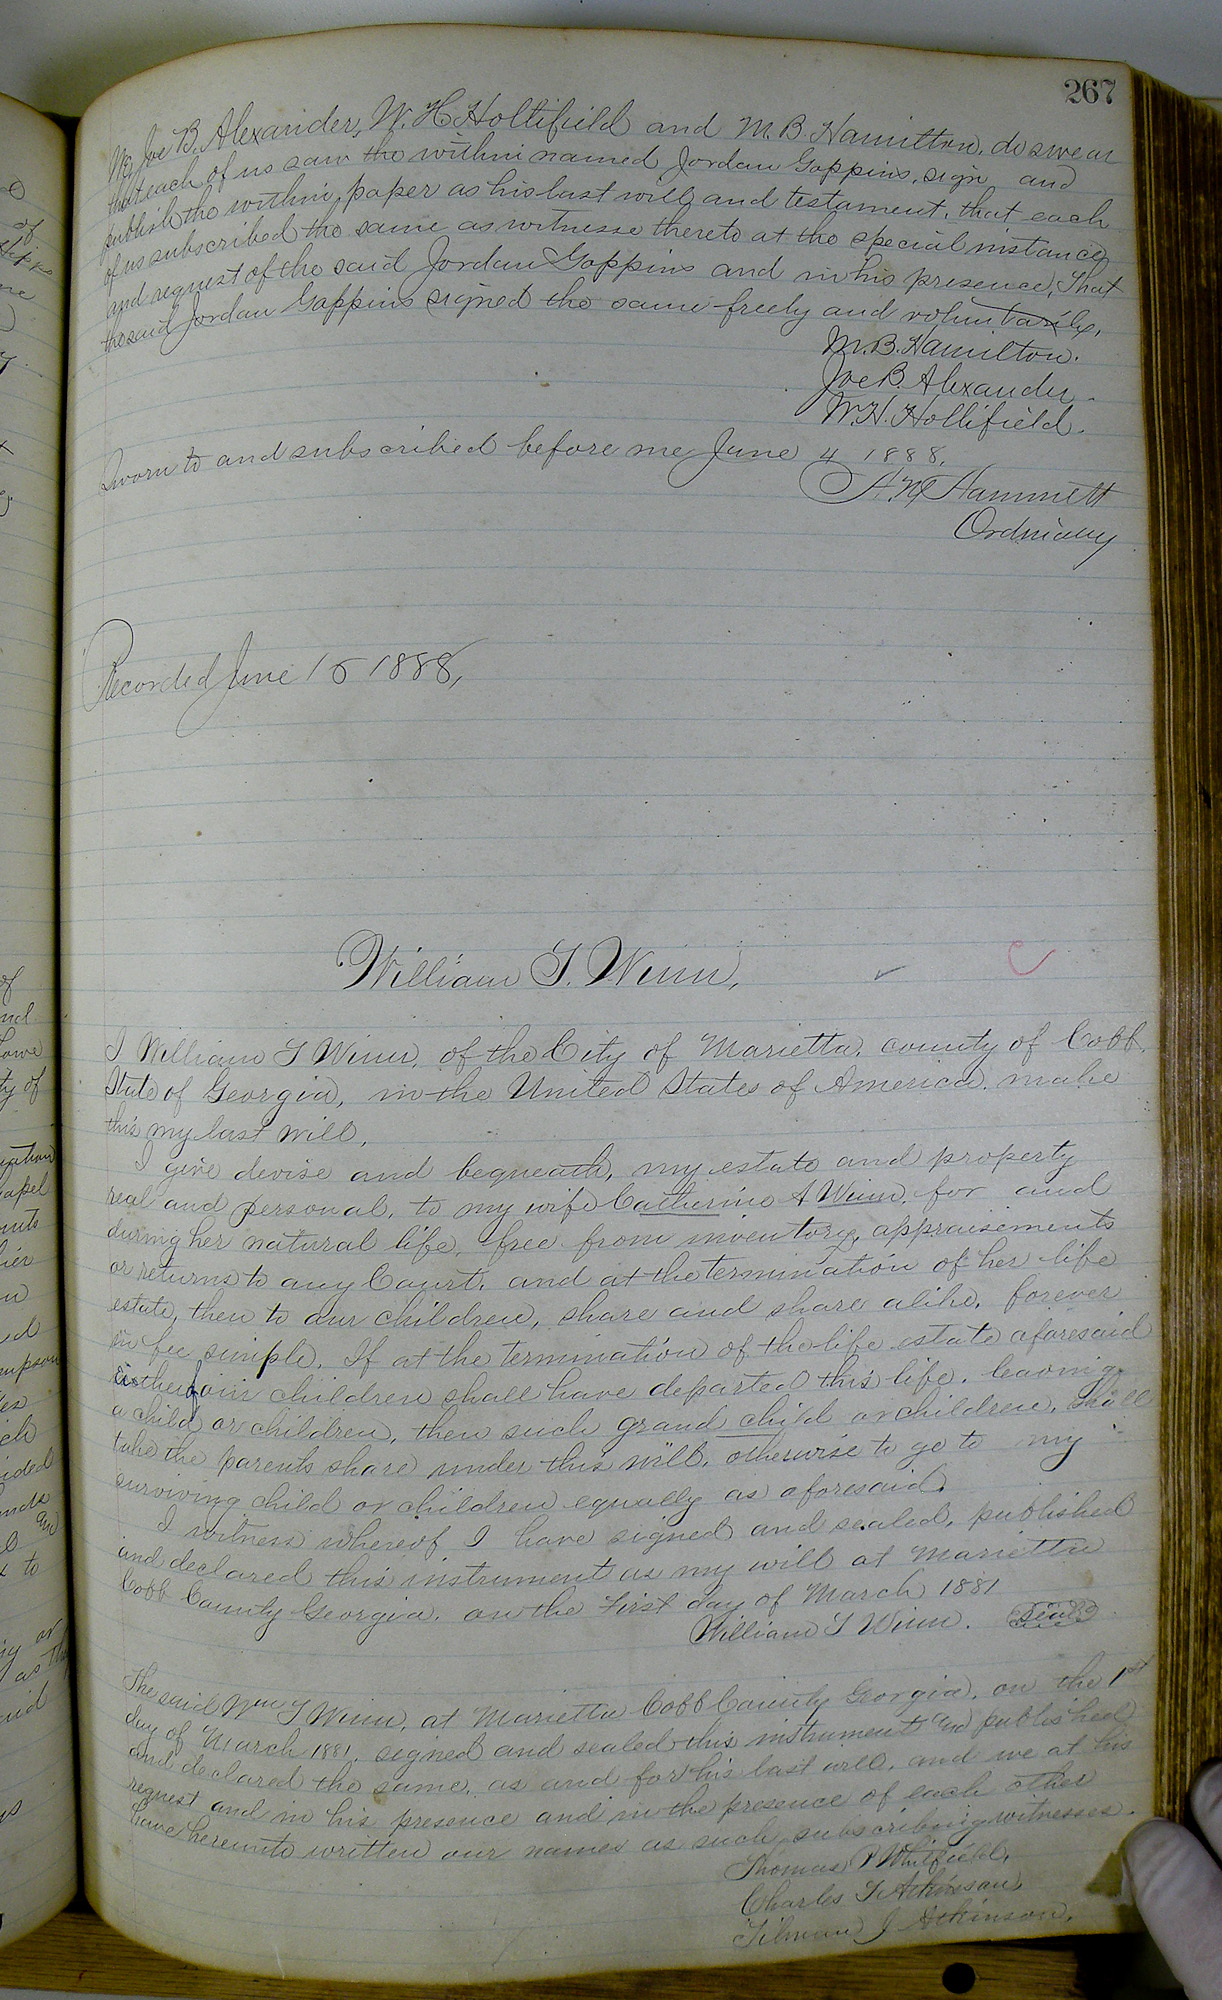 267
We, Joe B. Alexander, W. H. Hollifield and M. B. Hamilton, do swear
that each of us saw the within named Jordan Goppins, sign and
publish the within paper as his last will and testament, that each
of us subscribed the same as witnesse thereto at the special instance
and request of the said Jordan Goppins and in his presence, That
the said Jordan Goppins signed the same freely and voluntarily,
M. B. Hamilton.
Joe B. Alexander.
W. H. Hollifield.
Sworn to and subscribed before me June 4 1888,
H. M. Hammett
Ordinary
Recorded June 15 1888,
William T. Winn,
I William T Winn, of the City of Marietta, county of Cobb,
State of Georgia, in the United States of America, make
this my last will,
I give devise and bequeath, my estate and property
real and personal, to my wife Catherine A Winn, for and
during her natural life, free from inventory, appraisements
or returns to any Court, and at the termination of her life
estate, then to our children, share and share alike, forever
in fee simple. If at the termination of the life estate aforesaid
either of our children shall have departed this life, leaving
a child or children, then such grand child or children, shall
take the parents share under this will, otherwise to go to my
surviving child or children equally as aforesaid.
I witness whereof I have signed and sealed, published
and declared this instrument as my will at Marietta
Cobb County Georgia, on the First day of March 1881
William T Winn. Seal
The said Wm T Winn, at Marietta Cobb County Georgia, on the 1st
day of March 1881, signed and sealed this instrument and published
and declared the same, as and for his last will, and we at his
request and in his presence and in the presence of each other
have hereunto written our names as such subscribing witnesses.
Thomas P Whitfield,
Charles T Atkinson,
Tilman J Atkinson,